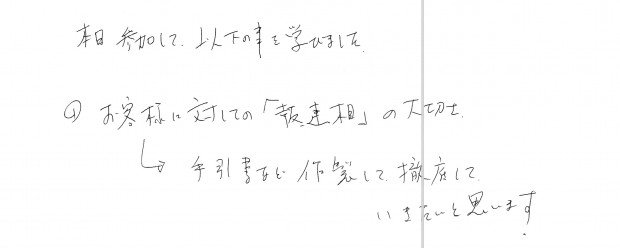 本日参加して、以下の事を学びました。
① お客様に対しての「報連相」の大切さ。
↳ 手引書など作製して、徹底して
いきたいと思います。